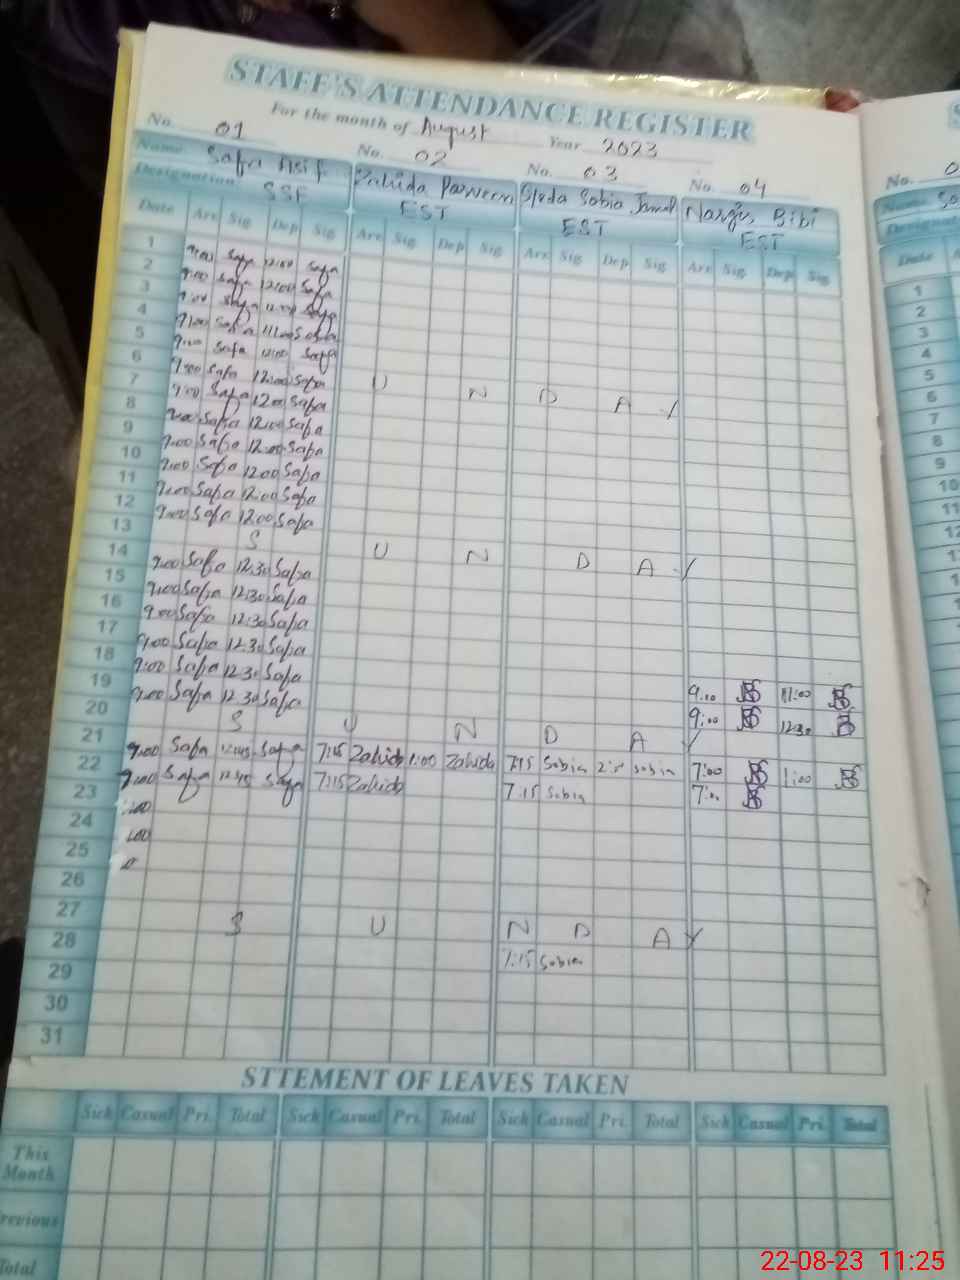 STAFF'S ATTENDANCE REGISTER
For the month of August Year 2023
No. 01 No. 02 No. 03 No. 04 No.
Name. Safa Asif Zahida Parveen Syeda Sobia Jamal Nargis Bibi
Designation. SSF EST EST EST
Date Arr. Sig. Dep. Sig. Arr. Sig. Dep. Sig. Arr. Sig. Dep. Sig. Arr. Sig. Dep. Sig. Date
1 9:00 Safa 12:00 Safa 1
2 9:00 Safa 12:00 Safa 2
3 9:00 Safa 12:00 Safa 3
4 9:00 Safa 11:00 Safa 4
5 9:00 Safa 12:00 Safa 5
6 9:00 Safa 12:00 Safa U N D A Y 6
7 9:00 Safa 12:00 Safa 7
8 9:00 Safa 12:00 Safa 8
9 9:00 Safa 12:00 Safa 9
10 9:00 Safa 12:00 Safa 10
11 9:00 Safa 12:00 Safa 11
12 9:00 Safa 12:00 Safa 12
13 S U N D A Y
14 9:00 Safa 12:30 Safa
15 9:00 Safa 12:30 Safa
16 9:00 Safa 12:30 Safa
17 9:00 Safa 12:30 Safa
18 9:00 Safa 12:30 Safa 9:00 11:00
19 9:00 Safa 12:30 Safa 9:00 12:30
20 S U N D A Y
21 9:00 Safa 12:45 Safa 7:15 Zahida 1:00 Zahida 7:15 Sobia Sobia 7:00 1:00
22 9:00 Safa 12:45 Safa 7:15 Zahida 7:15 Sobia 7:00
23
24
25
26
27 S U N D A Y
28 7:15 Sobia
29
30
31
STTEMENT OF LEAVES TAKEN
Sick Casual Pri. Total Sick Casual Pri. Total Sick Casual Pri. Total Sick Casual Pri. Total
This Month
revious
Total
22-08-23 11:25